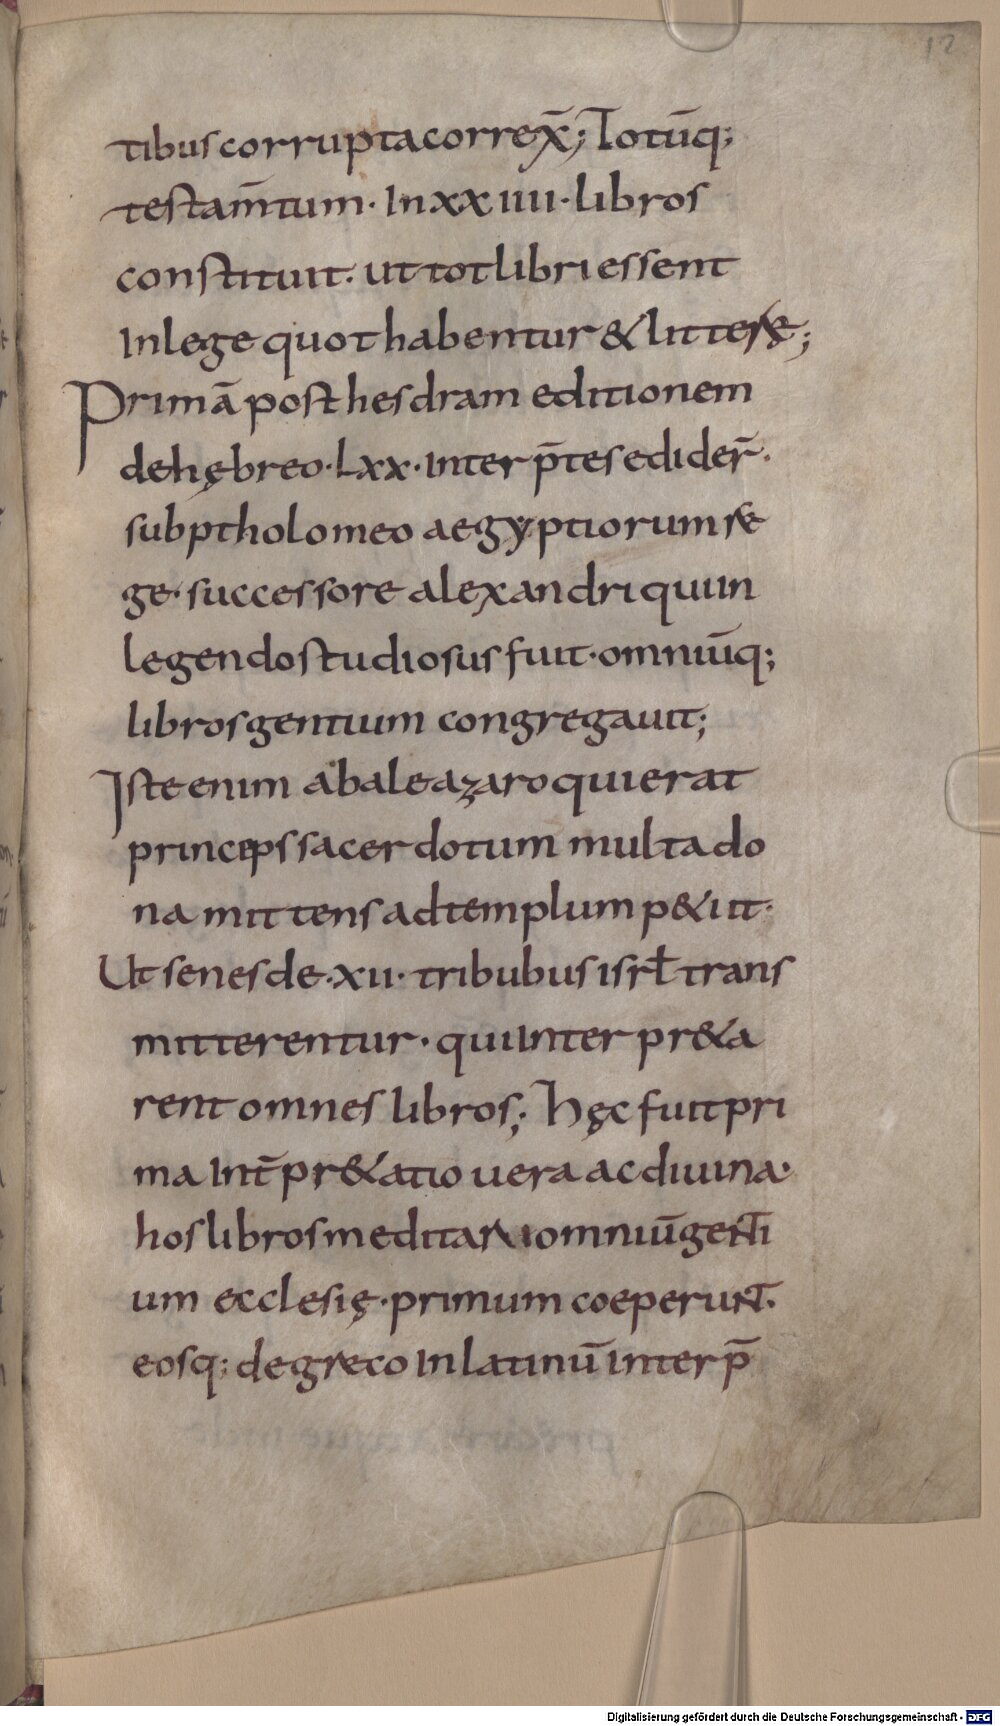 12
tibus corrupta correx̄; Totūq;
testam̄tum· In xxiiii· libros
constituit· ut tot libri essent
In lege quot habentur & litterę;
Primā post hesdram editionem
de hębreo· Lxx· interp̄tes edider̄·
sub ptholomeo aegyptiorum re
ge· successore alexandri qui in
legendo studiosus fuit· omniūq;
libros gentium congregauit;
Iste enim ab aleazaro qui erat
princeps sacerdotum multa do
na mittens ad templum p&iit·
Ut senes de· xii· tribubus isrł trans
mitterentur· qui inter pr&a
rent omnes libros; hęc fuit pri
ma int̄pr&atio uera ac diuina·
hos libros meditari omniū genti
um ecclesię· primum coeperunt·
eosq; de greco in latinū interp̄
Digitalisierung gefördert durch die Deutsche Forschungsgemeinschaft - DFG